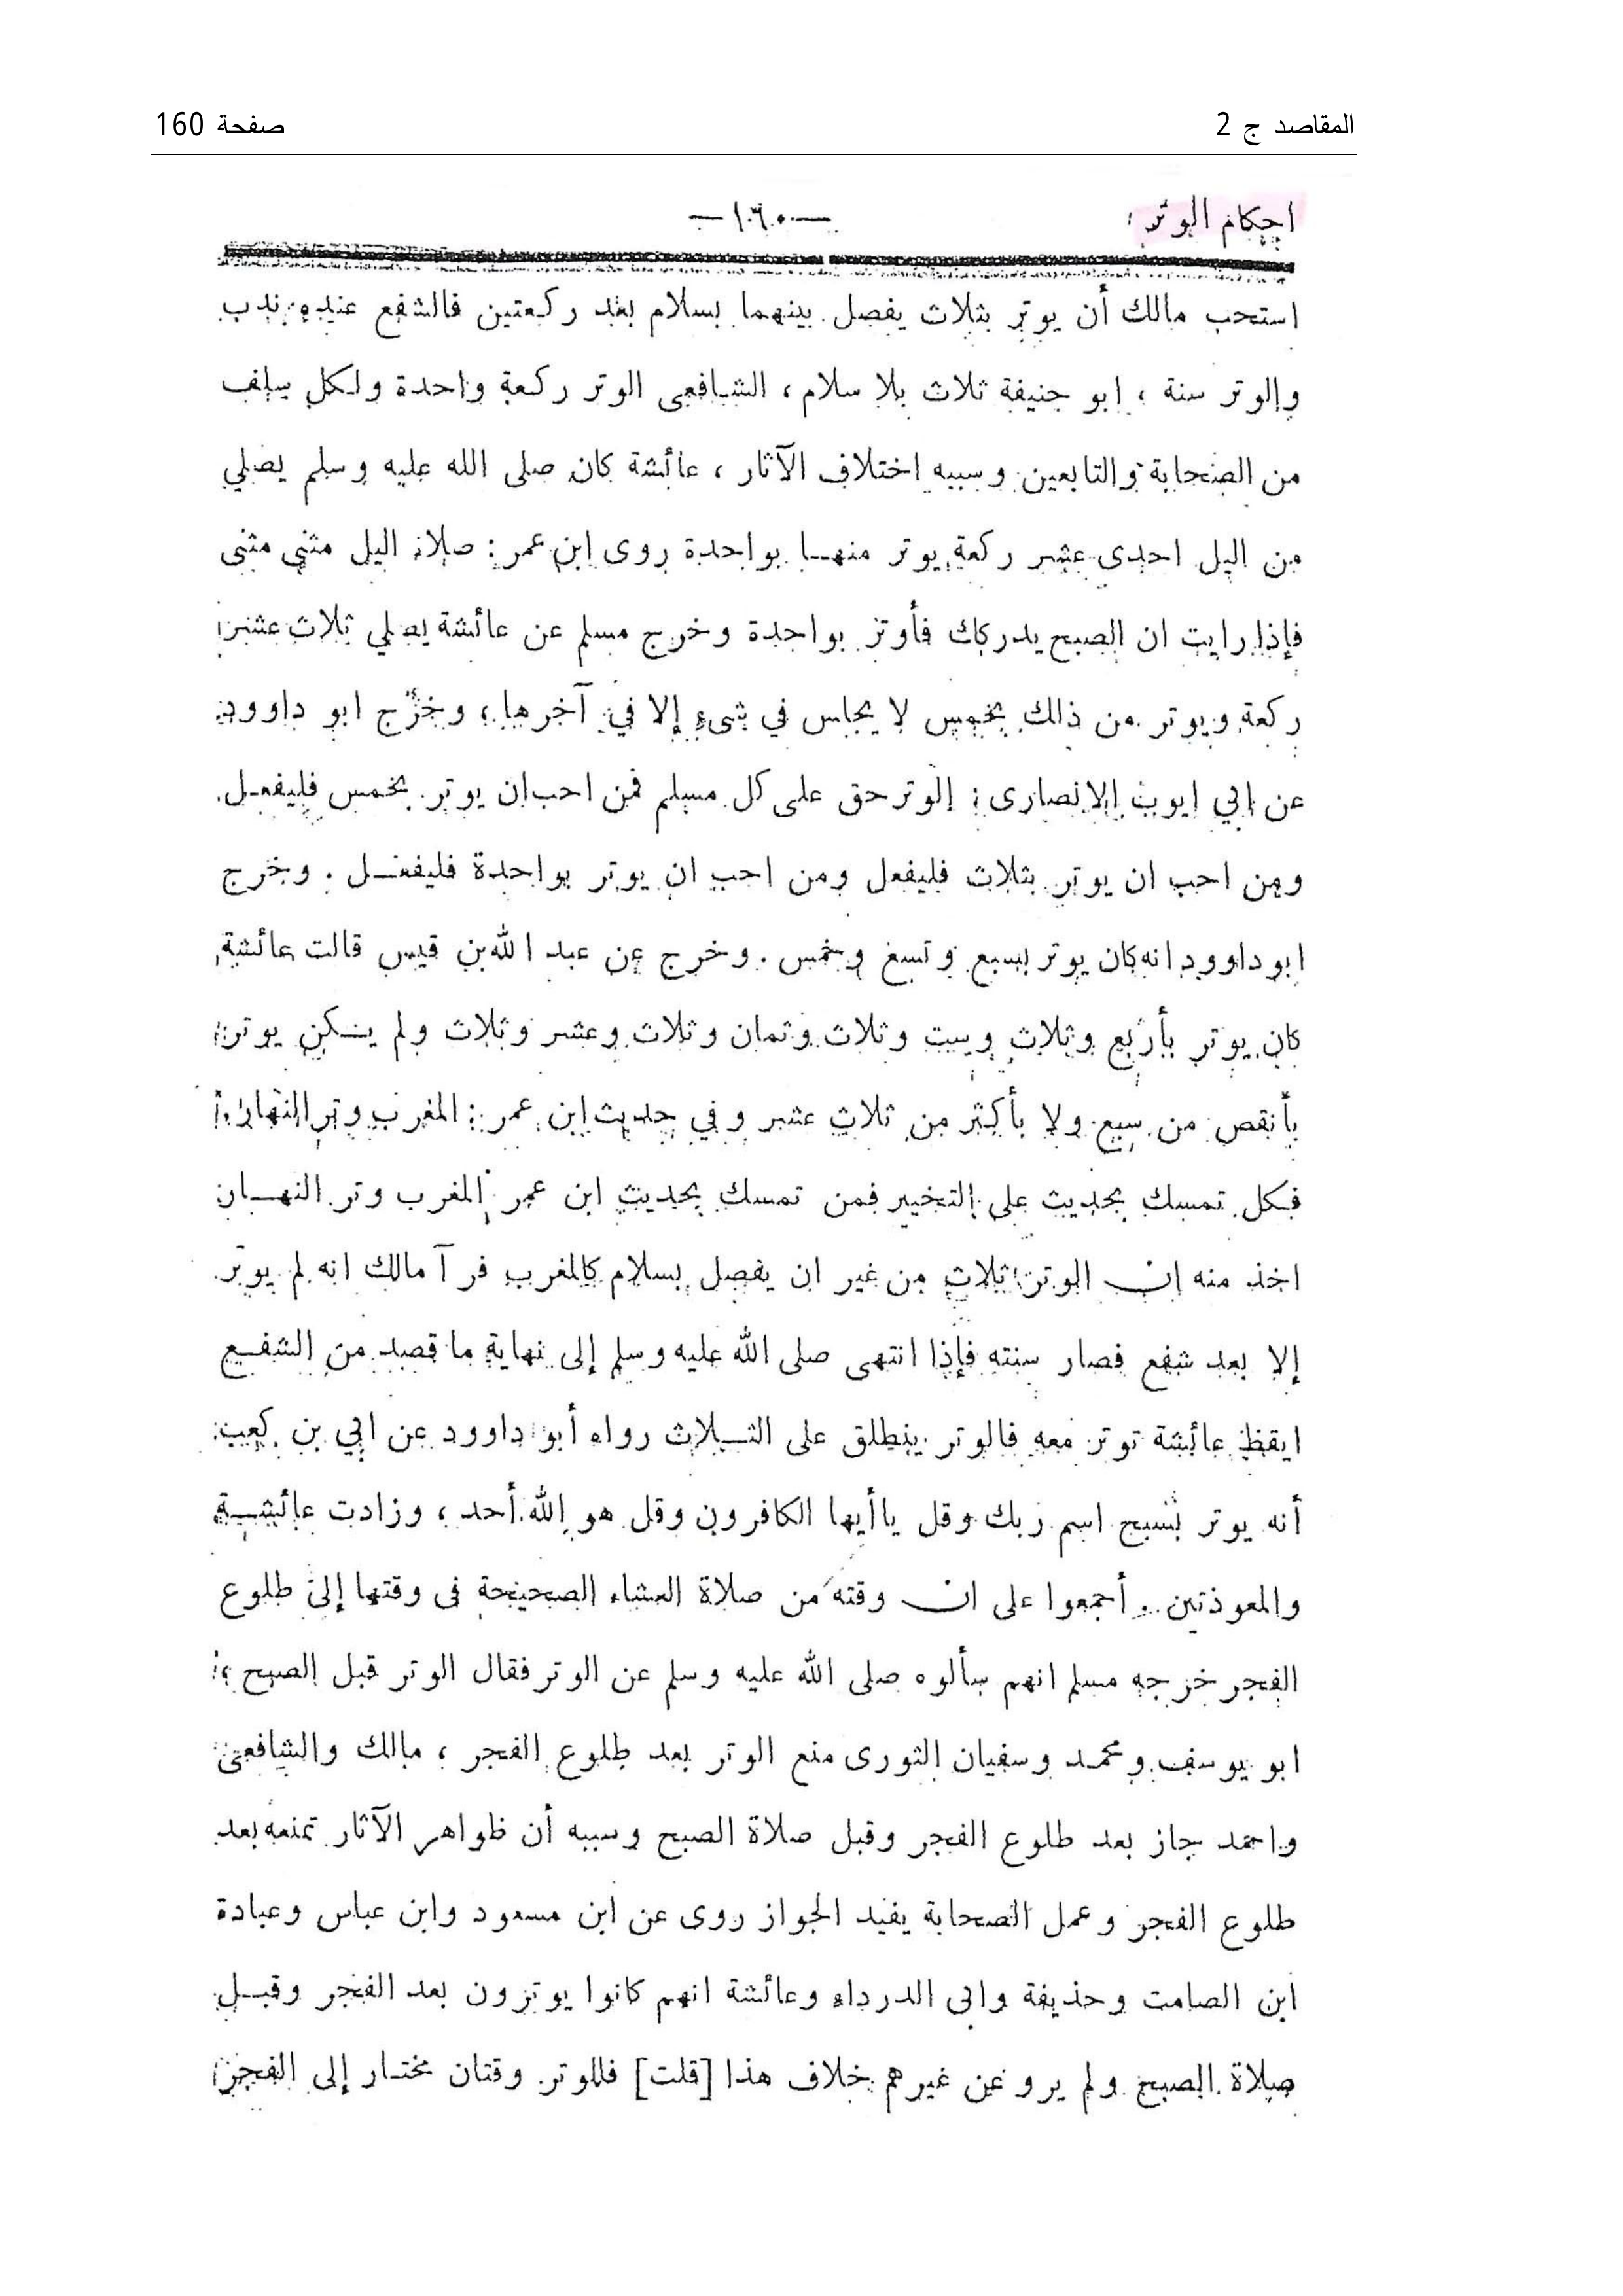 المقاصد ج 2
صفحة 160
احكام الوتر
—١٦٠—
استحب مالك أن يوتر بثلاث يفصل بينهما بسلام بعد ركعتين فالشفع عنده ندب
والوتر سنة ، ابو حنيفة ثلاث بلا سلام ، الشافعى الوتر ركعة واحدة ولكل سلف
من الصحابة والتابعين وسببه اختلاف الآثار ، عائشة كان صلى الله عليه وسلم يصلي
من اليل احدى عشر ركعة يوتر منها بواحدة روى ابن عمر : صلاة اليل مثنى مثنى
فإذا رايت ان الصبح يدركك فأوتر بواحدة وخرج مسلم عن عائشة يصلي ثلاث عشر
ركعة ويوتر من ذلك بخمس لا يجلس في شىء إلا في آخرها ، وخرّج ابو داوود
عن ابي ايوب الانصارى : الوتر حق على كل مسلم فمن احب ان يوتر بخمس فليفعل
ومن احب ان يوتر بثلاث فليفعل ومن احب ان يوتر بواحدة فليفعل . وخرج
ابو داوود انه كان يوتر بسبع وتسع وخمس . وخرج عن عبد الله بن قيس قالت عائشة
كان يوتر بأربع وثلاث وست وثلاث وثمان وثلاث وعشر وثلاث ولم يكن يوتر
بأنقص من سبع ولا بأكثر من ثلاث عشر وفي حديث ابن عمر : المغرب وتر النهار
فكل تمسك بحديث على التخيير فمن تمسك بحديث ابن عمر المغرب وتر النهار
اخذ منه ان الوتر ثلاث من غير ان يفصل بسلام كالمغرب فرآ مالك انه لم يوتر
إلا بعد شفع فصار سنته فإذا انتهى صلى الله عليه وسلم إلى نهاية ما قصد من الشفع
ايقظ عائشة توتر معه فالوتر ينطلق على الثلاث رواه أبو داوود عن ابي بن كعب
أنه يوتر بسبح اسم ربك وقل ياأيها الكافرون وقل هو الله أحد ، وزادت عائشة
والمعوذتين . أجمعوا على ان وقته من صلاة العشاء الصحيحة فى وقتها إلى طلوع
الفجر خرجه مسلم انهم سألوه صلى الله عليه وسلم عن الوتر فقال الوتر قبل الصبح ،
ابو يوسف ومحمد وسفيان الثورى منع الوتر بعد طلوع الفجر ، مالك والشافعى
واحمد جاز بعد طلوع الفجر وقبل صلاة الصبح وسببه أن ظواهر الآثار تمنعه بعد
طلوع الفجر وعمل الصحابة يفيد الجواز روى عن ابن مسعود وابن عباس وعبادة
ابن الصامت وحذيفة وابى الدرداء وعائشة انهم كانوا يوترون بعد الفجر وقبل
صلاة الصبح ولم يرو عن غيرهم خلاف هذا [قلت] فللوتر وقتان مختار إلى الفجر